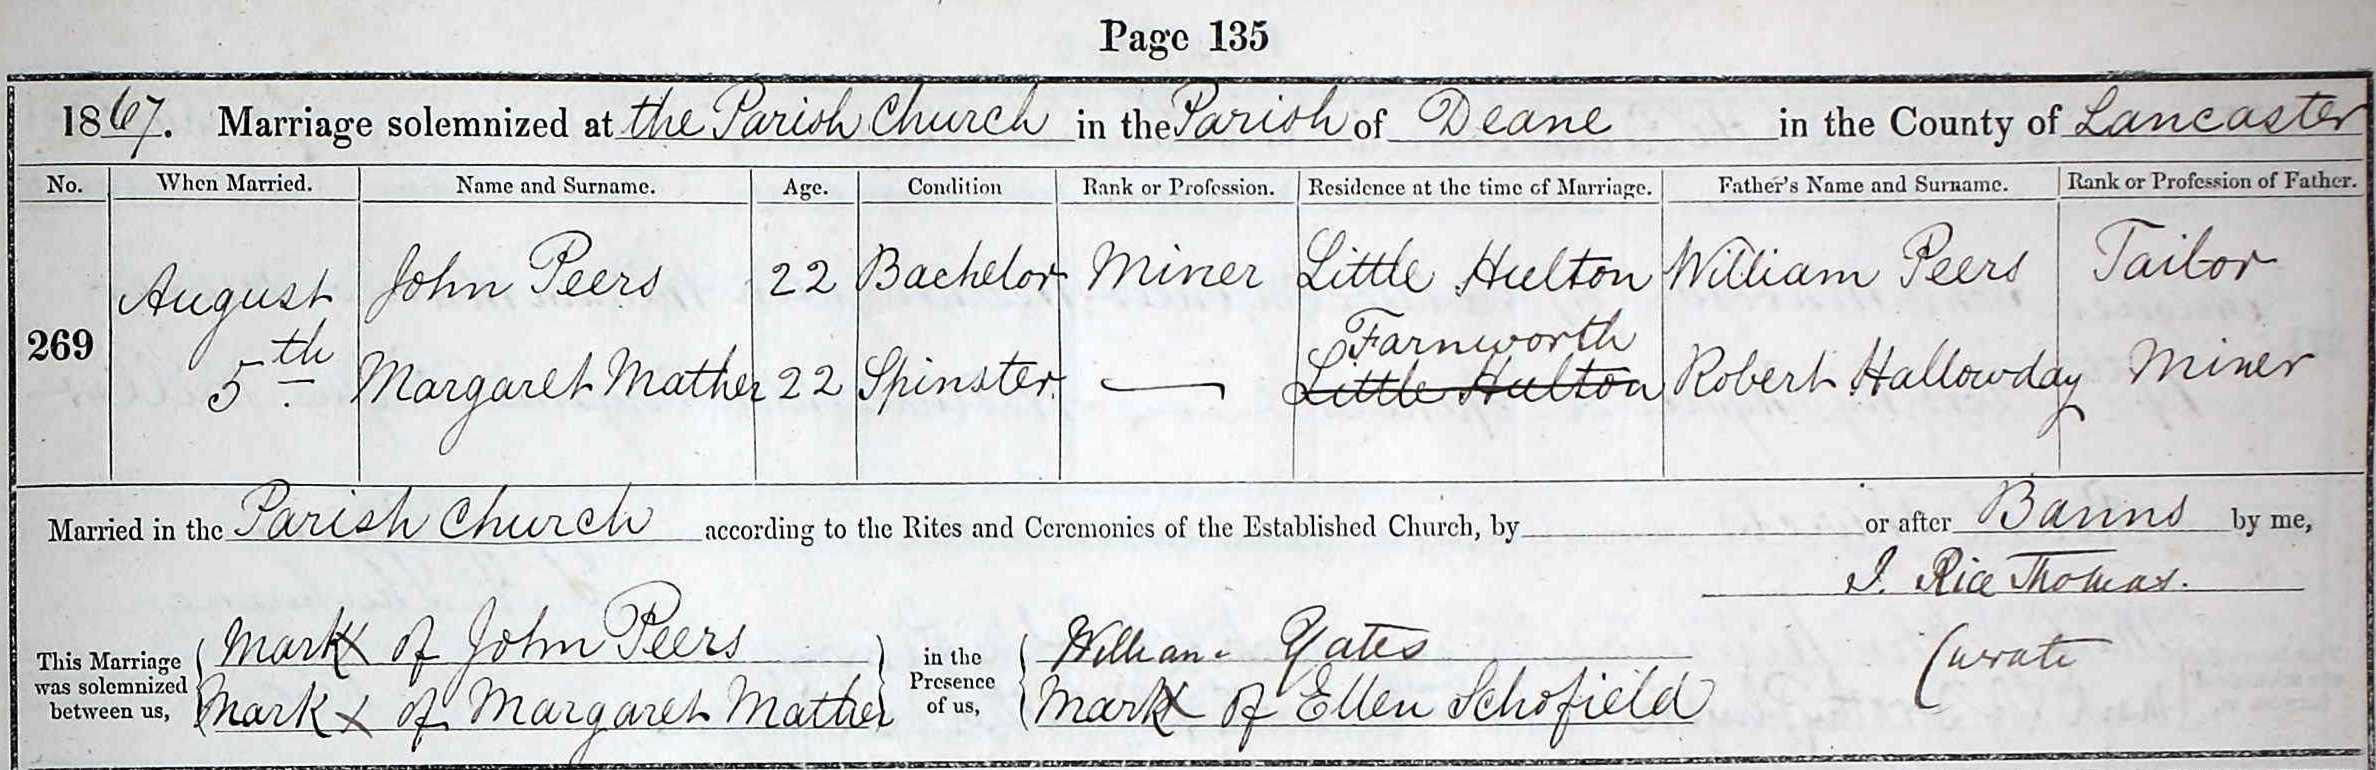 Page 135
1867. Marriage solemnized at the Parish Church in the Parish of Deane in the County of Lancaster
No. When Married. Name and Surname. Age. Condition Rank or Profession. Residence at the time of Marriage. Father's Name and Surname. Rank or Profession of Father.
269 August 5th John Peers 22 Bachelor Miner Little Hulton William Peers Tailor
Farnworth
Margaret Mather 22 Spinster — Little Hulton Robert Hallowday Miner
Married in the Parish Church according to the Rites and Ceremonies of the Established Church, by or after Banns by me,
J. Rice Thomas.
Curate
This Marriage was solemnized between us, Mark X of John Peers in the Presence of us, William Yates
Mark X of Margaret Mather Mark X of Ellen Schofield